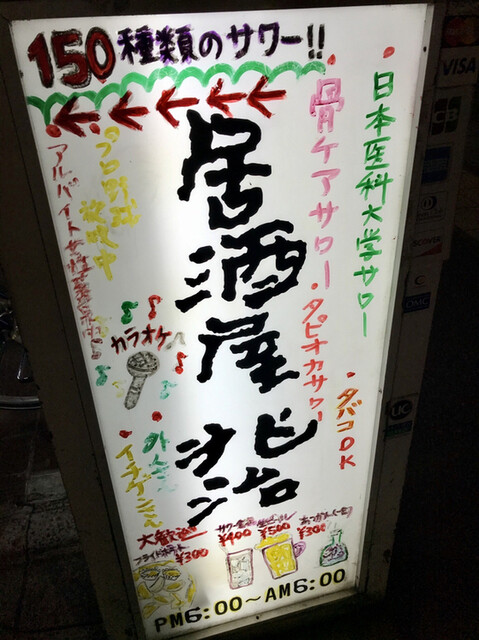 150種類のサワー!!
日本医科大学サワー
骨ケアサワー
タピオカサワー
タバコOK
居酒屋
プロ野球
放映中
アルバイト女性募集中
カラオケ
外人さん
イチゲンさん
大歓迎
フライドポテト
¥300
サワー全品
¥400
生ビール
¥500
あつかん(一合)
¥300
PM6:00～AM6:00
VISA
JCB
DISCOVER
OMC
UC